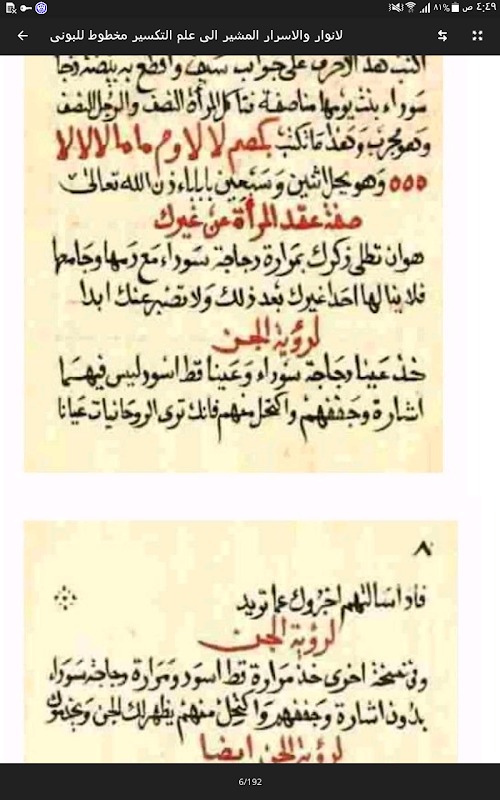 ٤:٤٩ ص
٨١%
لانوار والاسرار المشير الى علم التكسير مخطوط للبونى
اكتب هذ الاحرف على جوانب سيف واقطع به بيضة دجا
سوداء بنت يومها مناصفة فتاكل المرأة النصف والرجل النصف
وهو مجرب وهذا ما تكتب
٥٥٥ وهو يحل اثنين وسبعين بابا باذن الله تعالى
صفة عقد المرأة عن غيرك
هو ان تطلى ذكرك بمرارة دجاجة سوداء مع دمها وجامعها
فلا ينالها احد غيرك بعد ذلك ولا تصبر عنك ابدا
لرؤية الجن
خذ عينا دجاجة سوداء وعينا قط اسود ليس فيهما
اشارة وجففهم واكتحل منهم فانك ترى الروحانيات عيانا
٨
فاذا سالتهم اخبروك عما تريد
لرؤية الجن
وفى نسخة اخرى خذ مرارة قط اسود ومرارة دجاجة سوداء
بدون اشارة وجففهم واكتحل منهم يظهر لك الجن
لرؤية الجن ايضا
6/192